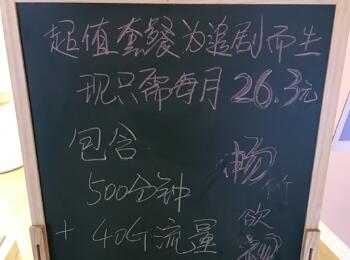 超值套餐为追剧而生
现只需每月26.3元
包含
500分钟
+ 40G流量
畅
所
欲